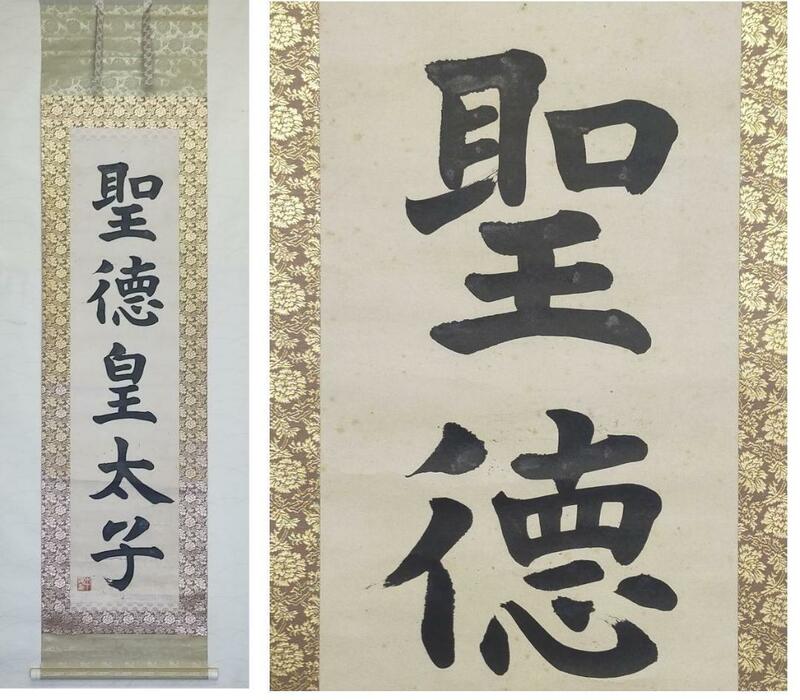 聖德皇太子
聖德